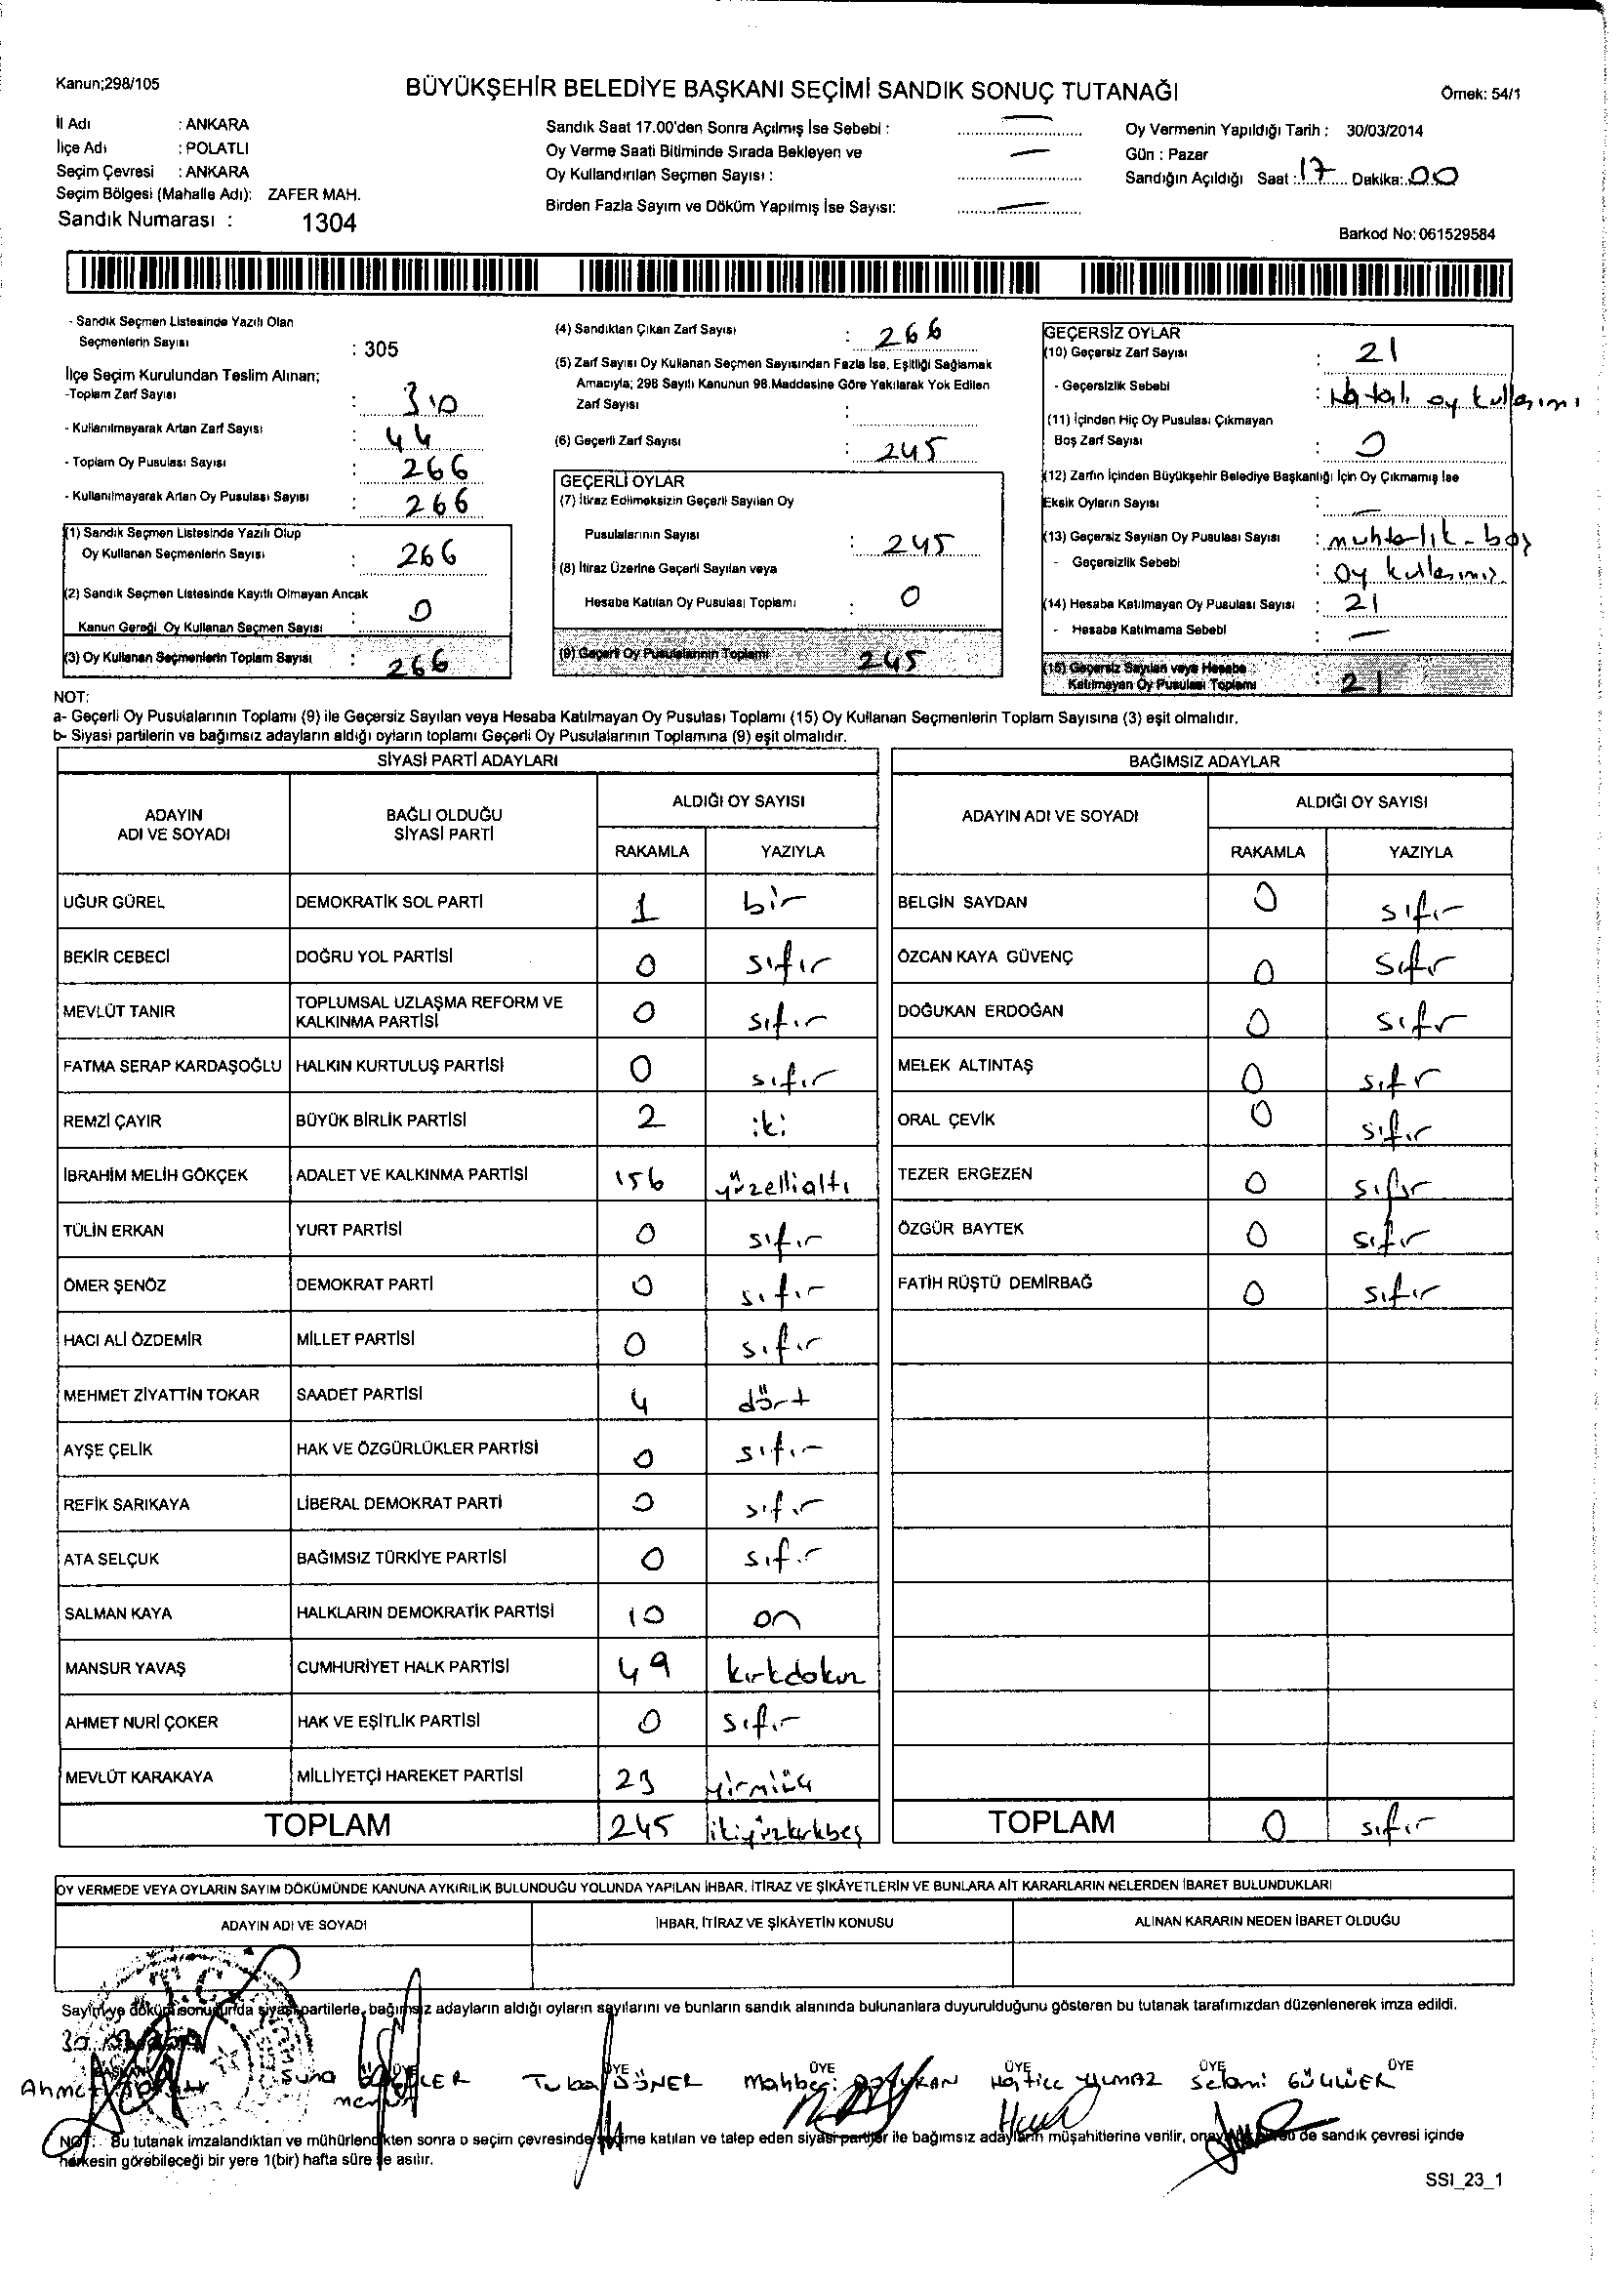 Kanun;298/105
BÜYÜKŞEHİR BELEDİYE BAŞKANI SEÇİMİ SANDIK SONUÇ TUTANAĞI
Örnek: 54/1
İl Adı : ANKARA
İlçe Adı : POLATLI
Seçim Çevresi : ANKARA
Seçim Bölgesi (Mahalle Adı): ZAFER MAH.
Sandık Numarası : 1304
Sandık Saat 17.00'den Sonra Açılmış İse Sebebi :
Oy Verme Saati Bitiminde Sırada Bekleyen ve
Oy Kullandırılan Seçmen Sayısı :
Birden Fazla Sayım ve Döküm Yapılmış İse Sayısı:
Oy Vermenin Yapıldığı Tarih : 30/03/2014
Gün : Pazar
Sandığın Açıldığı Saat : 17 Dakika: 00
Barkod No: 061529584
- Sandık Seçmen Listesinde Yazılı Olan
Seçmenlerin Sayısı : 305
İlçe Seçim Kurulundan Teslim Alınan;
-Toplam Zarf Sayısı : 310
- Kullanılmayarak Artan Zarf Sayısı : 44
- Toplam Oy Pusulası Sayısı : 266
- Kullanılmayarak Artan Oy Pusulası Sayısı : 266
(1) Sandık Seçmen Listesinde Yazılı Olup
Oy Kullanan Seçmenlerin Sayısı : 266
(2) Sandık Seçmen Listesinde Kayıtlı Olmayan Ancak
Kanun Gereği Oy Kullanan Seçmen Sayısı : 0
(3) Oy Kullanan Seçmenlerin Toplam Sayısı : 266
(4) Sandıktan Çıkan Zarf Sayısı : 266
(5) Zarf Sayısı Oy Kullanan Seçmen Sayısından Fazla İse, Eşitliği Sağlamak
Amacıyla; 298 Sayılı Kanunun 98.Maddesine Göre Yakılarak Yok Edilen
Zarf Sayısı :
(6) Geçerli Zarf Sayısı : 245
GEÇERLİ OYLAR
(7) İtiraz Edilmeksizin Geçerli Sayılan Oy
Pusulalarının Sayısı : 245
(8) İtiraz Üzerine Geçerli Sayılan veya
Hesaba Katılan Oy Pusulası Toplamı : 0
(9) Geçerli Oy Pusulalarının Toplamı 245
GEÇERSİZ OYLAR
(10) Geçersiz Zarf Sayısı : 21
- Geçersizlik Sebebi : Hatalı oy kullanımı
(11) İçinden Hiç Oy Pusulası Çıkmayan
Boş Zarf Sayısı : 0
(12) Zarfın İçinden Büyükşehir Belediye Başkanlığı İçin Oy Çıkmamış İse
Eksik Oyların Sayısı : —
(13) Geçersiz Sayılan Oy Pusulası Sayısı : muhtarlık - boş
- Geçersizlik Sebebi : oy kullanımı
(14) Hesaba Katılmayan Oy Pusulası Sayısı : 21
- Hesaba Katılmama Sebebi : —
(15) Geçersiz Sayılan veya Hesaba
Katılmayan Oy Pusulası Toplamı : 21
NOT:
a- Geçerli Oy Pusulalarının Toplamı (9) ile Geçersiz Sayılan veya Hesaba Katılmayan Oy Pusulası Toplamı (15) Oy Kullanan Seçmenlerin Toplam Sayısına (3) eşit olmalıdır.
b- Siyasi partilerin ve bağımsız adayların aldığı oyların toplamı Geçerli Oy Pusulalarının Toplamına (9) eşit olmalıdır.
SİYASİ PARTİ ADAYLARI
ADAYIN ADI VE SOYADI BAĞLI OLDUĞU SİYASİ PARTİ ALDIĞI OY SAYISI
RAKAMLA YAZIYLA
UĞUR GÜREL DEMOKRATİK SOL PARTİ 1 bir
BEKİR CEBECİ DOĞRU YOL PARTİSİ 0 sıfır
MEVLÜT TANIR TOPLUMSAL UZLAŞMA REFORM VE KALKINMA PARTİSİ 0 sıfır
FATMA SERAP KARDAŞOĞLU HALKIN KURTULUŞ PARTİSİ 0 sıfır
REMZİ ÇAYIR BÜYÜK BİRLİK PARTİSİ 2 iki
İBRAHİM MELİH GÖKÇEK ADALET VE KALKINMA PARTİSİ 156 yüzellialtı
TÜLİN ERKAN YURT PARTİSİ 0 sıfır
ÖMER ŞENÖZ DEMOKRAT PARTİ 0 sıfır
HACI ALİ ÖZDEMİR MİLLET PARTİSİ 0 sıfır
MEHMET ZİYATTİN TOKAR SAADET PARTİSİ 4 dört
AYŞE ÇELİK HAK VE ÖZGÜRLÜKLER PARTİSİ 0 sıfır
REFİK SARIKAYA LİBERAL DEMOKRAT PARTİ 0 sıfır
ATA SELÇUK BAĞIMSIZ TÜRKİYE PARTİSİ 0 sıfır
SALMAN KAYA HALKLARIN DEMOKRATİK PARTİSİ 10 on
MANSUR YAVAŞ CUMHURİYET HALK PARTİSİ 49 kırkdokuz
AHMET NURİ ÇOKER HAK VE EŞİTLİK PARTİSİ 0 sıfır
MEVLÜT KARAKAYA MİLLİYETÇİ HAREKET PARTİSİ 23 yirmiüç
TOPLAM 245 ikiyüzkırkbeş
BAĞIMSIZ ADAYLAR
ADAYIN ADI VE SOYADI ALDIĞI OY SAYISI
RAKAMLA YAZIYLA
BELGİN SAYDAN 0 sıfır
ÖZCAN KAYA GÜVENÇ 0 sıfır
DOĞUKAN ERDOĞAN 0 sıfır
MELEK ALTINTAŞ 0 sıfır
ORAL ÇEVİK 0 sıfır
TEZER ERGEZEN 0 sıfır
ÖZGÜR BAYTEK 0 sıfır
FATİH RÜŞTÜ DEMİRBAĞ 0 sıfır
TOPLAM 0 sıfır
OY VERMEDE VEYA OYLARIN SAYIM DÖKÜMÜNDE KANUNA AYKIRILIK BULUNDUĞU YOLUNDA YAPILAN İHBAR, İTİRAZ VE ŞİKÂYETLERİN VE BUNLARA AİT KARARLARIN NELERDEN İBARET BULUNDUKLARI
ADAYIN ADI VE SOYADI İHBAR, İTİRAZ VE ŞİKÂYETİN KONUSU ALINAN KARARIN NEDEN İBARET OLDUĞU
T.C.
Sayım ve döküm sonucunda siyasi partilerle, bağımsız adayların aldığı oyların sayılarını ve bunların sandık alanında bulunanlara duyurulduğunu gösteren bu tutanak tarafımızdan düzenlenerek imza edildi.
ÜYE ÜYE ÜYE ÜYE ÜYE ÜYE
Ahmet Suna Tuba DÖNER Hatice YILMAZ Selami GÜLLÜER
NOT: Bu tutanak imzalandıktan ve mühürlendikten sonra o seçim çevresinde seçime katılan ve talep eden siyasi partiler ile bağımsız adayların müşahitlerine verilir, de sandık çevresi içinde
herkesin görebileceği bir yere 1(bir) hafta süre ile asılır.
SSI_23_1